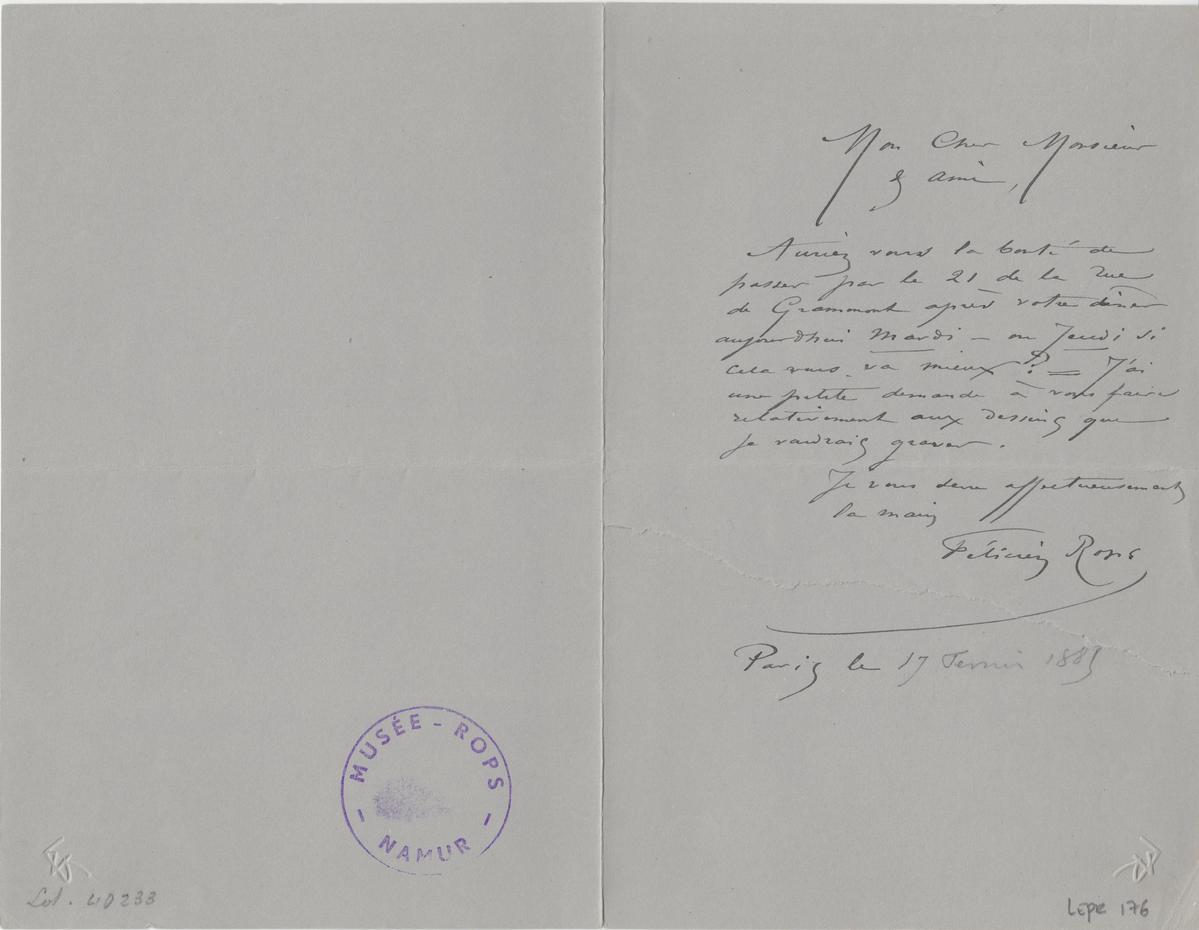 MUSÉE - ROPS
- NAMUR -
Lot. 40233
Mon Cher Monsieur
& ami,
Auriez vous la bonté de
passer par le 21 de la rue
de Grammont après votre dîner
aujourdhui Mardi – ou Jeudi si
cela vous va mieux ? = J'ai
une petite demande à vous faire
relativement aux dessins que
je voudrais graver.
Je vous serre affectueusement
la main
Félicien Rops
Paris le 17 Fevrier 1885
LEpr 176